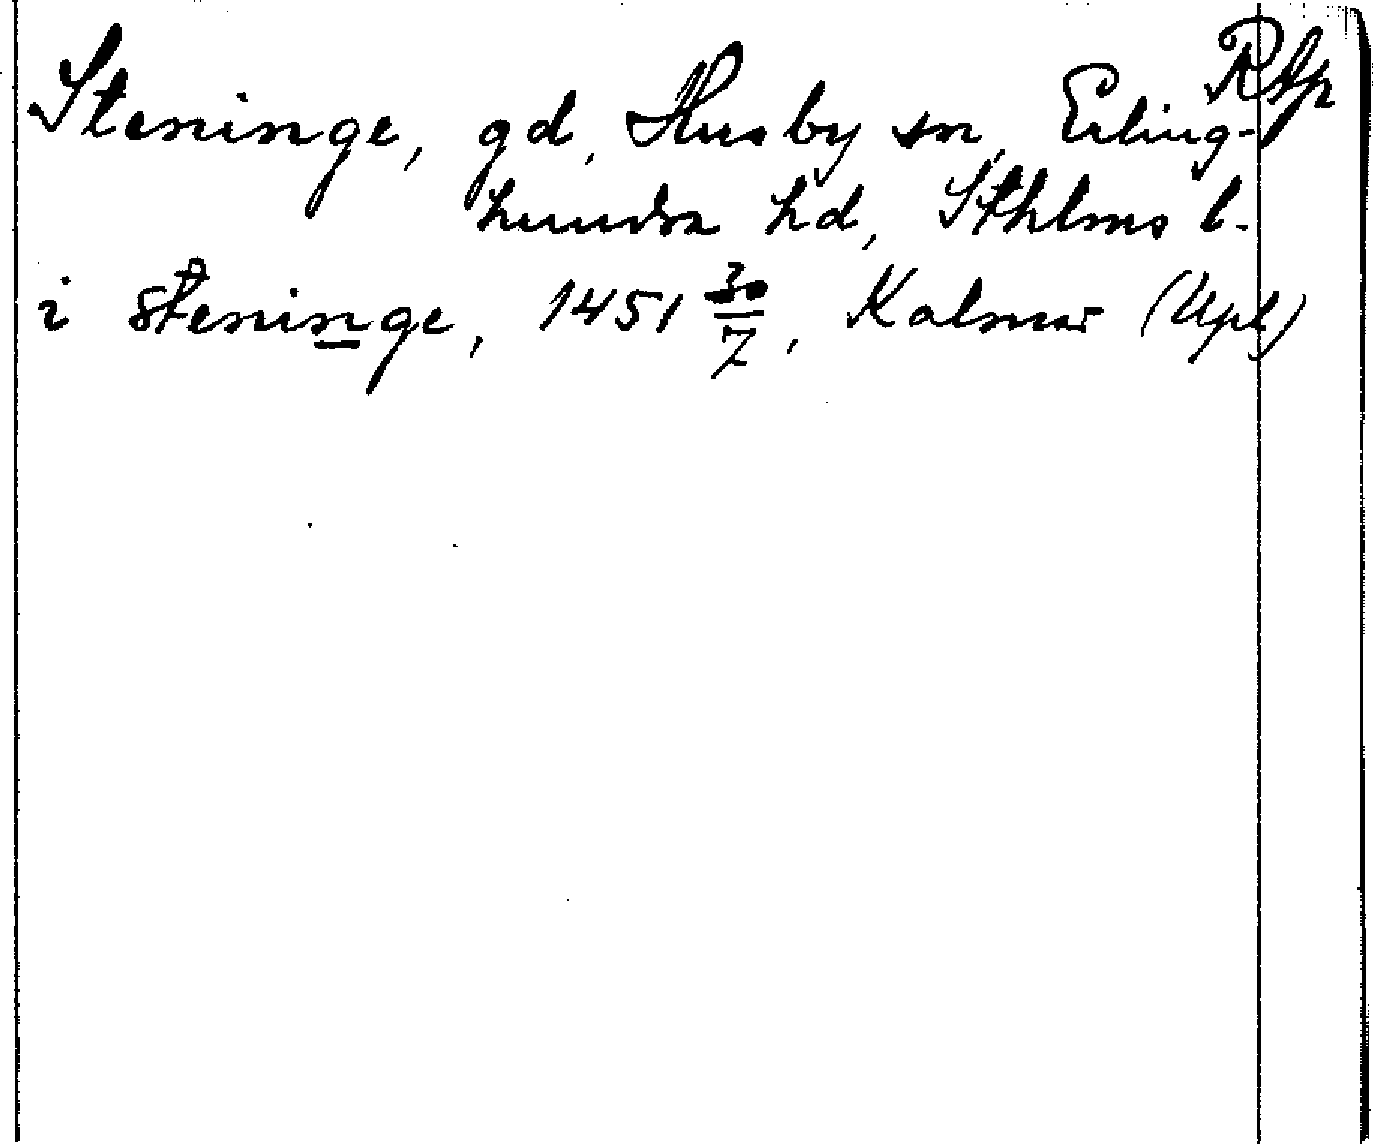 RAp
Steninge, gd, Husby sn, Erling-
hundra hd, Sthlms l.
i steninge, 1451 30/7, Kalmar (Upl)